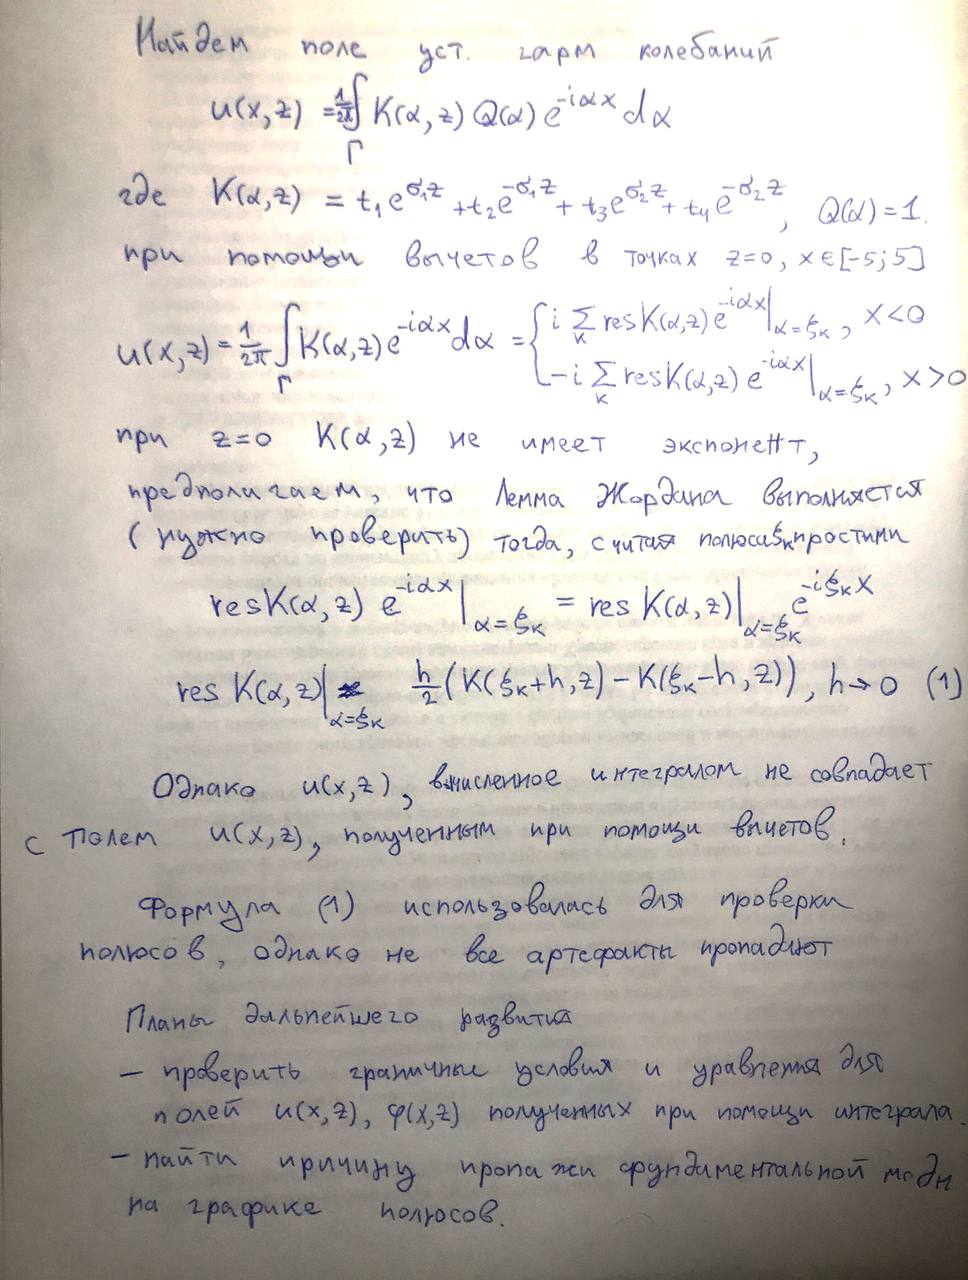 Найдем поле уст. гарм колебаний
u(x,z) = 1/2π ∫_Γ K(α,z) Q(α) e^{-iαx} dα
где K(α,z) = t₁e^{σ₁z} + t₂e^{-σ₁z} + t₃e^{σ₂z} + t₄e^{-σ₂z}, Q(α)=1.
при помощи вычетов в точках z=0, x∈[-5;5]
u(x,z) = 1/2π ∫_Γ K(α,z) e^{-iαx} dα = { i Σ_k res K(α,z) e^{-iαx}|_{α=ξ_k}, x<0
-i Σ_k res K(α,z) e^{-iαx}|_{α=ξ_k}, x>0
при z=0 K(α,z) не имеет экспонент,
предполагаем, что Лемма Жордана выполняется
(нужно проверить) тогда, считая полюса ξ_k простыми
res K(α,z) e^{-iαx}|_{α=ξ_k} = res K(α,z)|_{α=ξ_k} e^{-iξ_k x}
res K(α,z)|_{α=ξ_k} h/2 (K(ξ_k+h,z) - K(ξ_k-h,z)), h→0 (1)
Однако u(x,z), вычисленное интегралом не совпадает
с полем u(x,z), полученным при помощи вычетов.
Формула (1) использовалась для проверки
полюсов, однако не все артефакты пропадают
Планы дальнейшего развития
– проверить граничные условия и уравнения для
полей u(x,z), φ(x,z) полученных при помощи интеграла.
– найти причину пропажи фундаментальной моды
на графике полюсов.